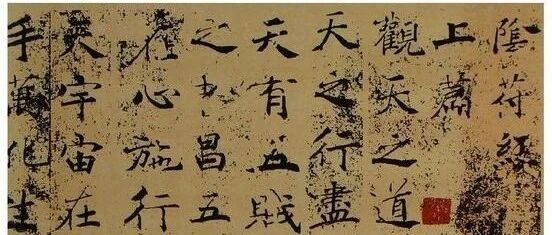 陰符經
上篇
觀天之道
天之行盡
天有五賊
之者昌五
在心施行
天宇宙在
手萬化生